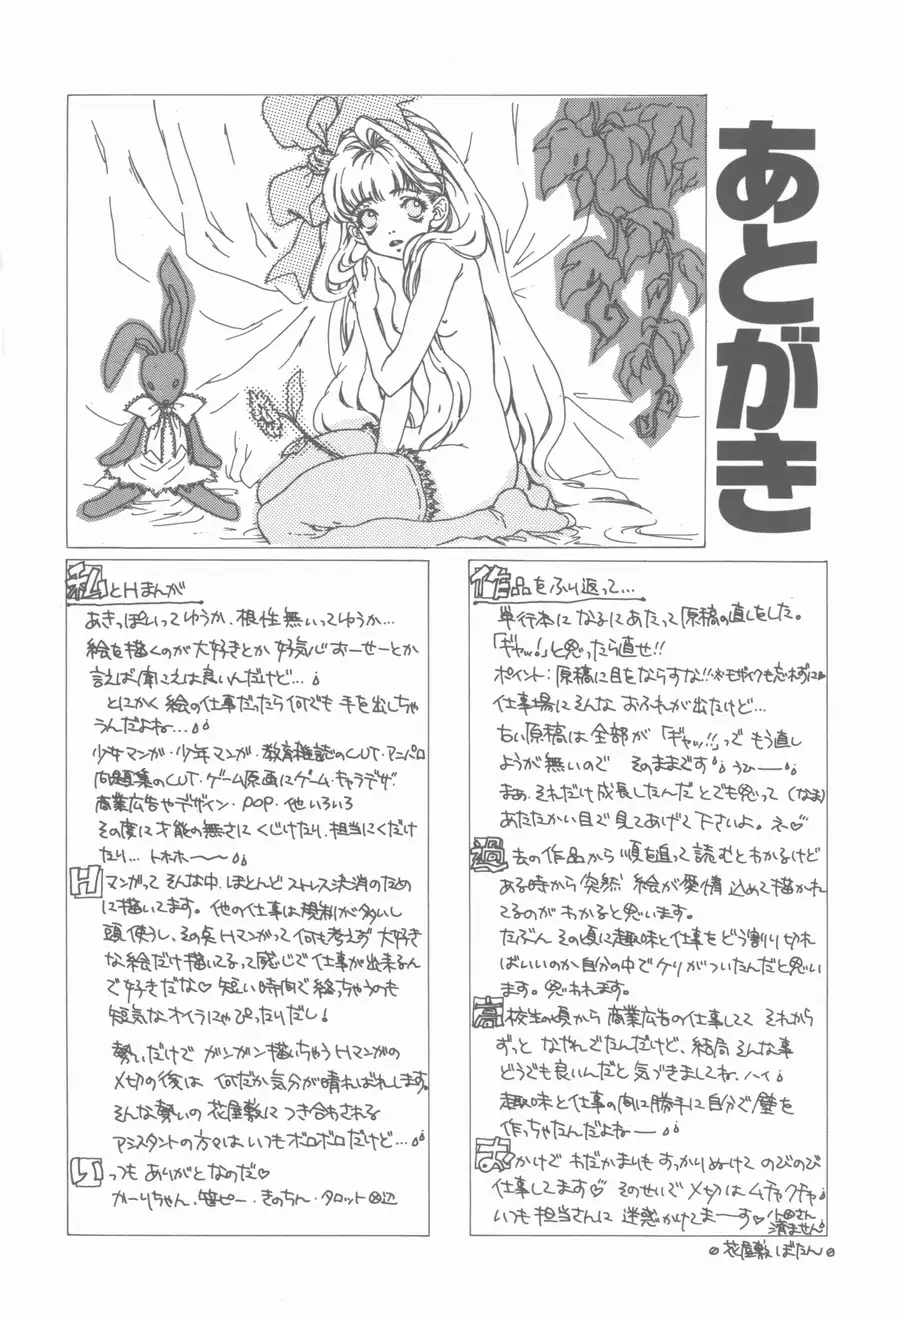 あとがき
私とHまんが
あきっぽいってゆうか、根性無いってゆうか…
絵を描くのが大好きとか 好奇心おーせーとか
言えば聞こえは良いんだけど…
とにかく 絵の仕事だったら何でも 手を出しちゃ
うんだよね…
少女マンガ・少年マンガ・教育雑誌のCUT・アニパロ
問題集のCUT・ゲーム原画にゲーム・キャラデザ
商業広告やデザイン・POP・他いろいろ
その度に才能の無さに くじけたり、担当にくだけ
たり… トホホ〜〜
Hマンガって そんな中、ほとんど ストレス決消のため
に描いてます。他の仕事は規制が多いし
頭使うし、その点Hマンガって 何も考えず 大好き
な絵だけ描いてるって感じで仕事が出来るん
で好きだな♡ 短い時間で終っちゃうのも
短気なオイラにゃぴったりだし!
勢いだけで ガンガン描いちゃうHマンガの
〆切の後は 何だか気分が晴ればれします。
そんな勢いの 花屋敷に つき合わされる
アシスタントの方々は いつも ボロボロだけど…
いつも ありがとなのだ♡
かーりちゃん、笹ピー・きのちん・タロット
作品をふり返って…
単行本に なるにあたって 原稿の直しをした。
「ギャッ!」と思ったら直せ!!
ポイント:原稿に目をならすな!!
仕事場に そんな おふれが出たけど…
古い原稿は 全部が「ギャッ!!」って もう直し
ようが無いので そのままです うひー
まぁ、それだけ成長したんだ とでも思って (なま)
あたたかい目で 見てあげて下さいよ。ネ♡
過去の作品から 順を追って 読むとわかるけど
ある時から 突然 絵が愛情 込めて描かれ
てるのが わかると思います。
たぶん その頃に趣味と仕事を どう割り切れ
ばいいのか 自分の中で ケリがついたんだと思い
ます。思われます。
高校生の頃から 商業広告の仕事してて それから
ずっと なやんでたんだけど、結局 そんな事
どうでも良いんだと 気づきましてね、ハイ
趣味と仕事の間に勝手に自分で壁を
作っちゃたんだよねー
おかげで わだかまりも すっかりぬけて のびのび
仕事してます♡ そのせいで 〆切は ムチャクチャ
いつも 担当さんに 迷惑かけてまーす♡ 小田さん
済ませんっ
花屋敷ぼたん